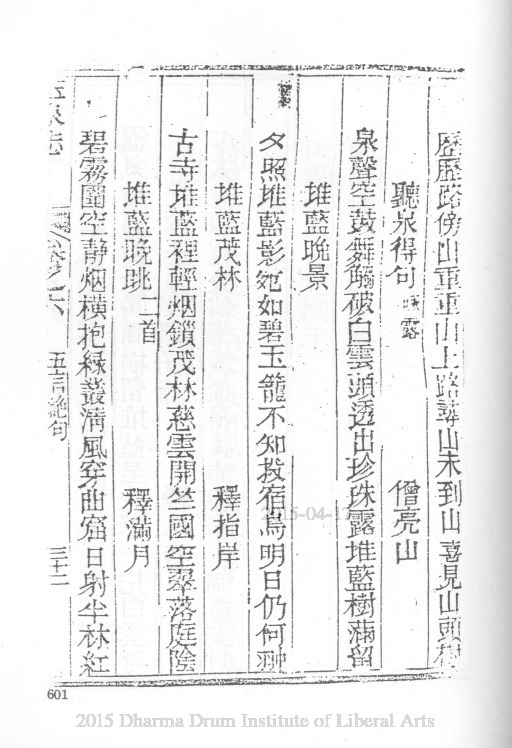 歷歷路傍山重重山上路尋山未到山喜見山頭樹
聽泉得句 露 僧亮山
泉聲空鼓舞觸破白雲頭透出珍珠露堆藍樹滿留
堆藍晚景
夕照堆藍影宛如碧玉籠不知投宿鳥明日仍何翀
堆藍茂林 釋指岸
古寺堆藍裡輕烟鎖茂林慈雲開竺國空翠落庭陰
堆藍晚眺二首 釋滿月
碧霧圍空靜烟橫抱綠叢清風穿曲窟日射半林紅
五言絕句 三十二
2015-04-17
601
2015 Dharma Drum Institute of Liberal Arts